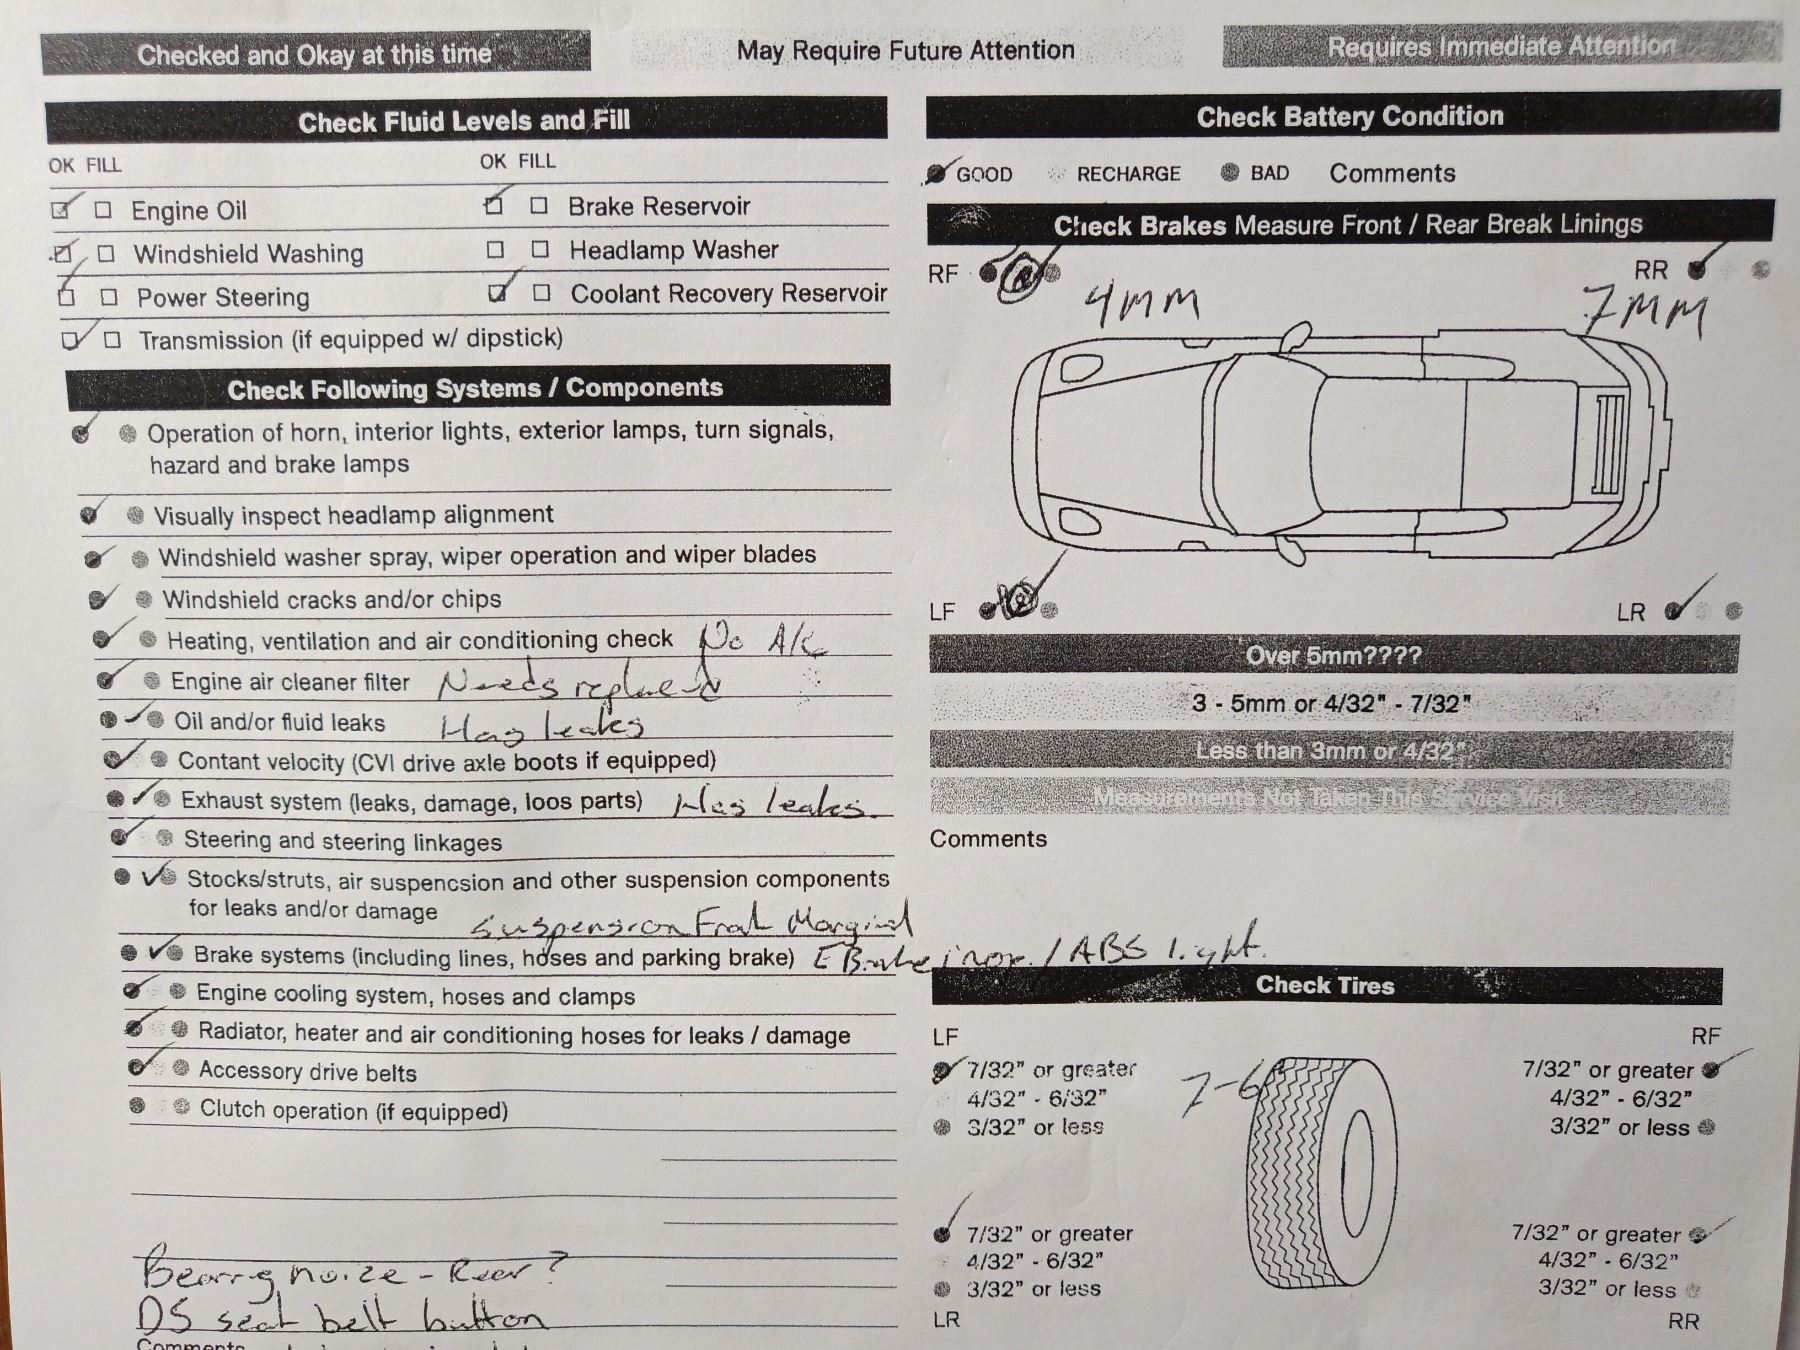 Checked and Okay at this time
May Require Future Attention
Requires Immediate Attention
Check Fluid Levels and Fill
OK FILL
OK FILL
Engine Oil
Brake Reservoir
Windshield Washing
Headlamp Washer
Power Steering
Coolant Recovery Reservoir
Transmission (if equipped w/ dipstick)
Check Following Systems / Components
Operation of horn, interior lights, exterior lamps, turn signals,
hazard and brake lamps
Visually inspect headlamp alignment
Windshield washer spray, wiper operation and wiper blades
Windshield cracks and/or chips
Heating, ventilation and air conditioning check No A/C
Engine air cleaner filter Needs replaced
Oil and/or fluid leaks Has leaks
Contant velocity (CVI drive axle boots if equipped)
Exhaust system (leaks, damage, loos parts) Has leaks.
Steering and steering linkages
Stocks/struts, air suspencsion and other suspension components
for leaks and/or damage Suspension Front Marginal
Brake systems (including lines, hoses and parking brake) E Brake inop. / ABS light.
Engine cooling system, hoses and clamps
Radiator, heater and air conditioning hoses for leaks / damage
Accessory drive belts
Clutch operation (if equipped)
Bearing noize - Rear?
DS seat belt button
Comments
Check Battery Condition
GOOD RECHARGE BAD Comments
Check Brakes Measure Front / Rear Break Linings
RF
RR
4MM
7MM
LF
LR
Over 5mm????
3 - 5mm or 4/32" - 7/32"
Less than 3mm or 4/32"
Measurements Not Taken This Service Visit
Comments
Check Tires
LF
RF
7/32" or greater
7-6
7/32" or greater
4/32" - 6/32"
4/32" - 6/32"
3/32" or less
3/32" or less
7/32" or greater
7/32" or greater
4/32" - 6/32"
4/32" - 6/32"
3/32" or less
3/32" or less
LR
RR